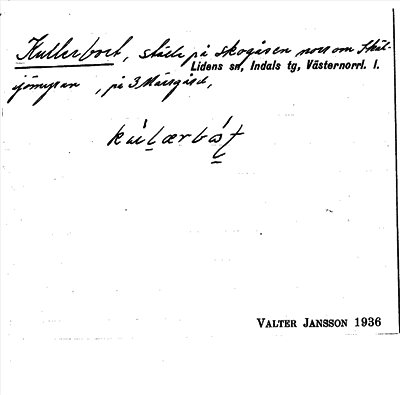 Kullerbort, ställe på skogåsen norr om Skäl-
Lidens sn, Indals tg, Västernorrl. l.
sjömyran, på 3 Märsgård,
VALTER JANSSON 1936